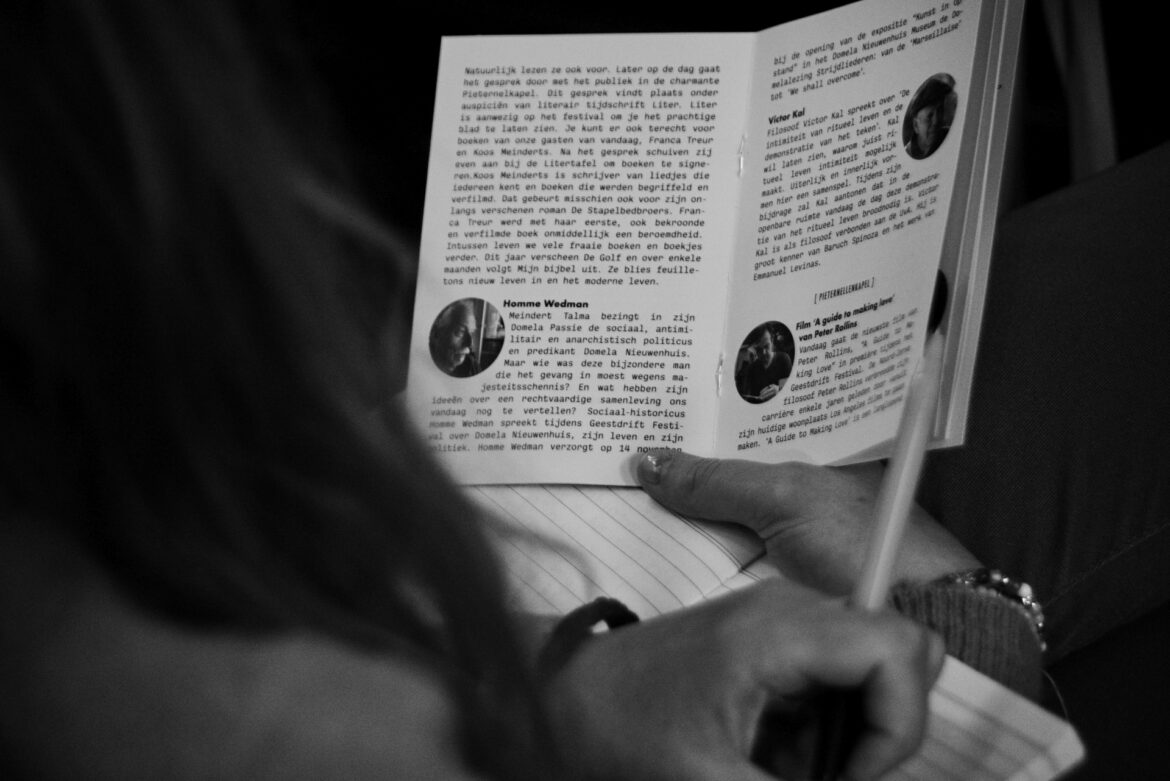 Natuurlijk lezen ze ook voor. Later op de dag gaat
het gesprek door met het publiek in de charmante
Pieternelkapel. Dit gesprek vindt plaats onder
auspiciën van literair tijdschrift Liter. Liter
is aanwezig op het festival om je het prachtige
blad te laten zien. Je kunt er ook terecht voor
boeken van onze gasten van vandaag, Franca Treur
en Koos Meinderts. Na het gesprek schuiven zij
even aan bij de Litertafel om boeken te signe-
ren.Koos Meinderts is schrijver van liedjes die
iedereen kent en boeken die werden begriffeld en
verfilmd. Dat gebeurt misschien ook voor zijn on-
langs verschenen roman De Stapelbedbroers. Fran-
ca Treur werd met haar eerste, ook bekroonde
en verfilmde boek onmiddellijk een beroemdheid.
Intussen leven we vele fraaie boeken en boekjes
verder. Dit jaar verscheen De Golf en over enkele
maanden volgt Mijn bijbel uit. Ze blies feuille-
tons nieuw leven in en het moderne leven.
Homme Wedman
Meindert Talma bezingt in zijn
Domela Passie de sociaal, antimi-
litair en anarchistisch politicus
en predikant Domela Nieuwenhuis.
Maar wie was deze bijzondere man
die het gevang in moest wegens ma-
jesteitsschennis? En wat hebben zijn
ideeën over een rechtvaardige samenleving ons
vandaag nog te vertellen? Sociaal-historicus
Homme Wedman spreekt tijdens Geestdrift Festi-
val over Domela Nieuwenhuis, zijn leven en zijn
politiek. Homme Wedman verzorgt op 14 november
bij de opening van de expositie "Kunst in Op
stand" in het Domela Nieuwenhuis Museum de Do-
melalezing Strijdliederen: van de 'Marseillaise'
tot 'We shall overcome'.
Victor Kal
Filosoof Victor Kal spreekt over 'De
intimiteit van ritueel leven en de
demonstratie van het teken'. Kal
wil laten zien, waarom juist ri-
tueel leven intimiteit mogelijk
maakt. Uiterlijk en innerlijk vor-
men hier een samenspel. Tijdens zijn
bijdrage zal Kal aantonen dat in de
openbare ruimte vandaag de dag deze demonstra-
tie van het ritueel leven broodnodig is. Victor
Kal is als filosoof verbonden aan de UvA. Hij is
groot kenner van Baruch Spinoza en het werk van
Emmanuel Levinas.
[ PIETERNELLENKAPEL ]
Film 'A guide to making love'
van Peter Rollins
Vandaag gaat de nieuwste film van
Peter Rollins, "A Guide to Ma-
king Love" in première tijdens het
Geestdrift Festival. De Noord-Ierse
filosoof Peter Rollins verbreedde zijn
carrière enkele jaren geleden door vanuit
zijn huidige woonplaats Los Angeles films te gaan
maken. 'A Guide to Making Love' is een